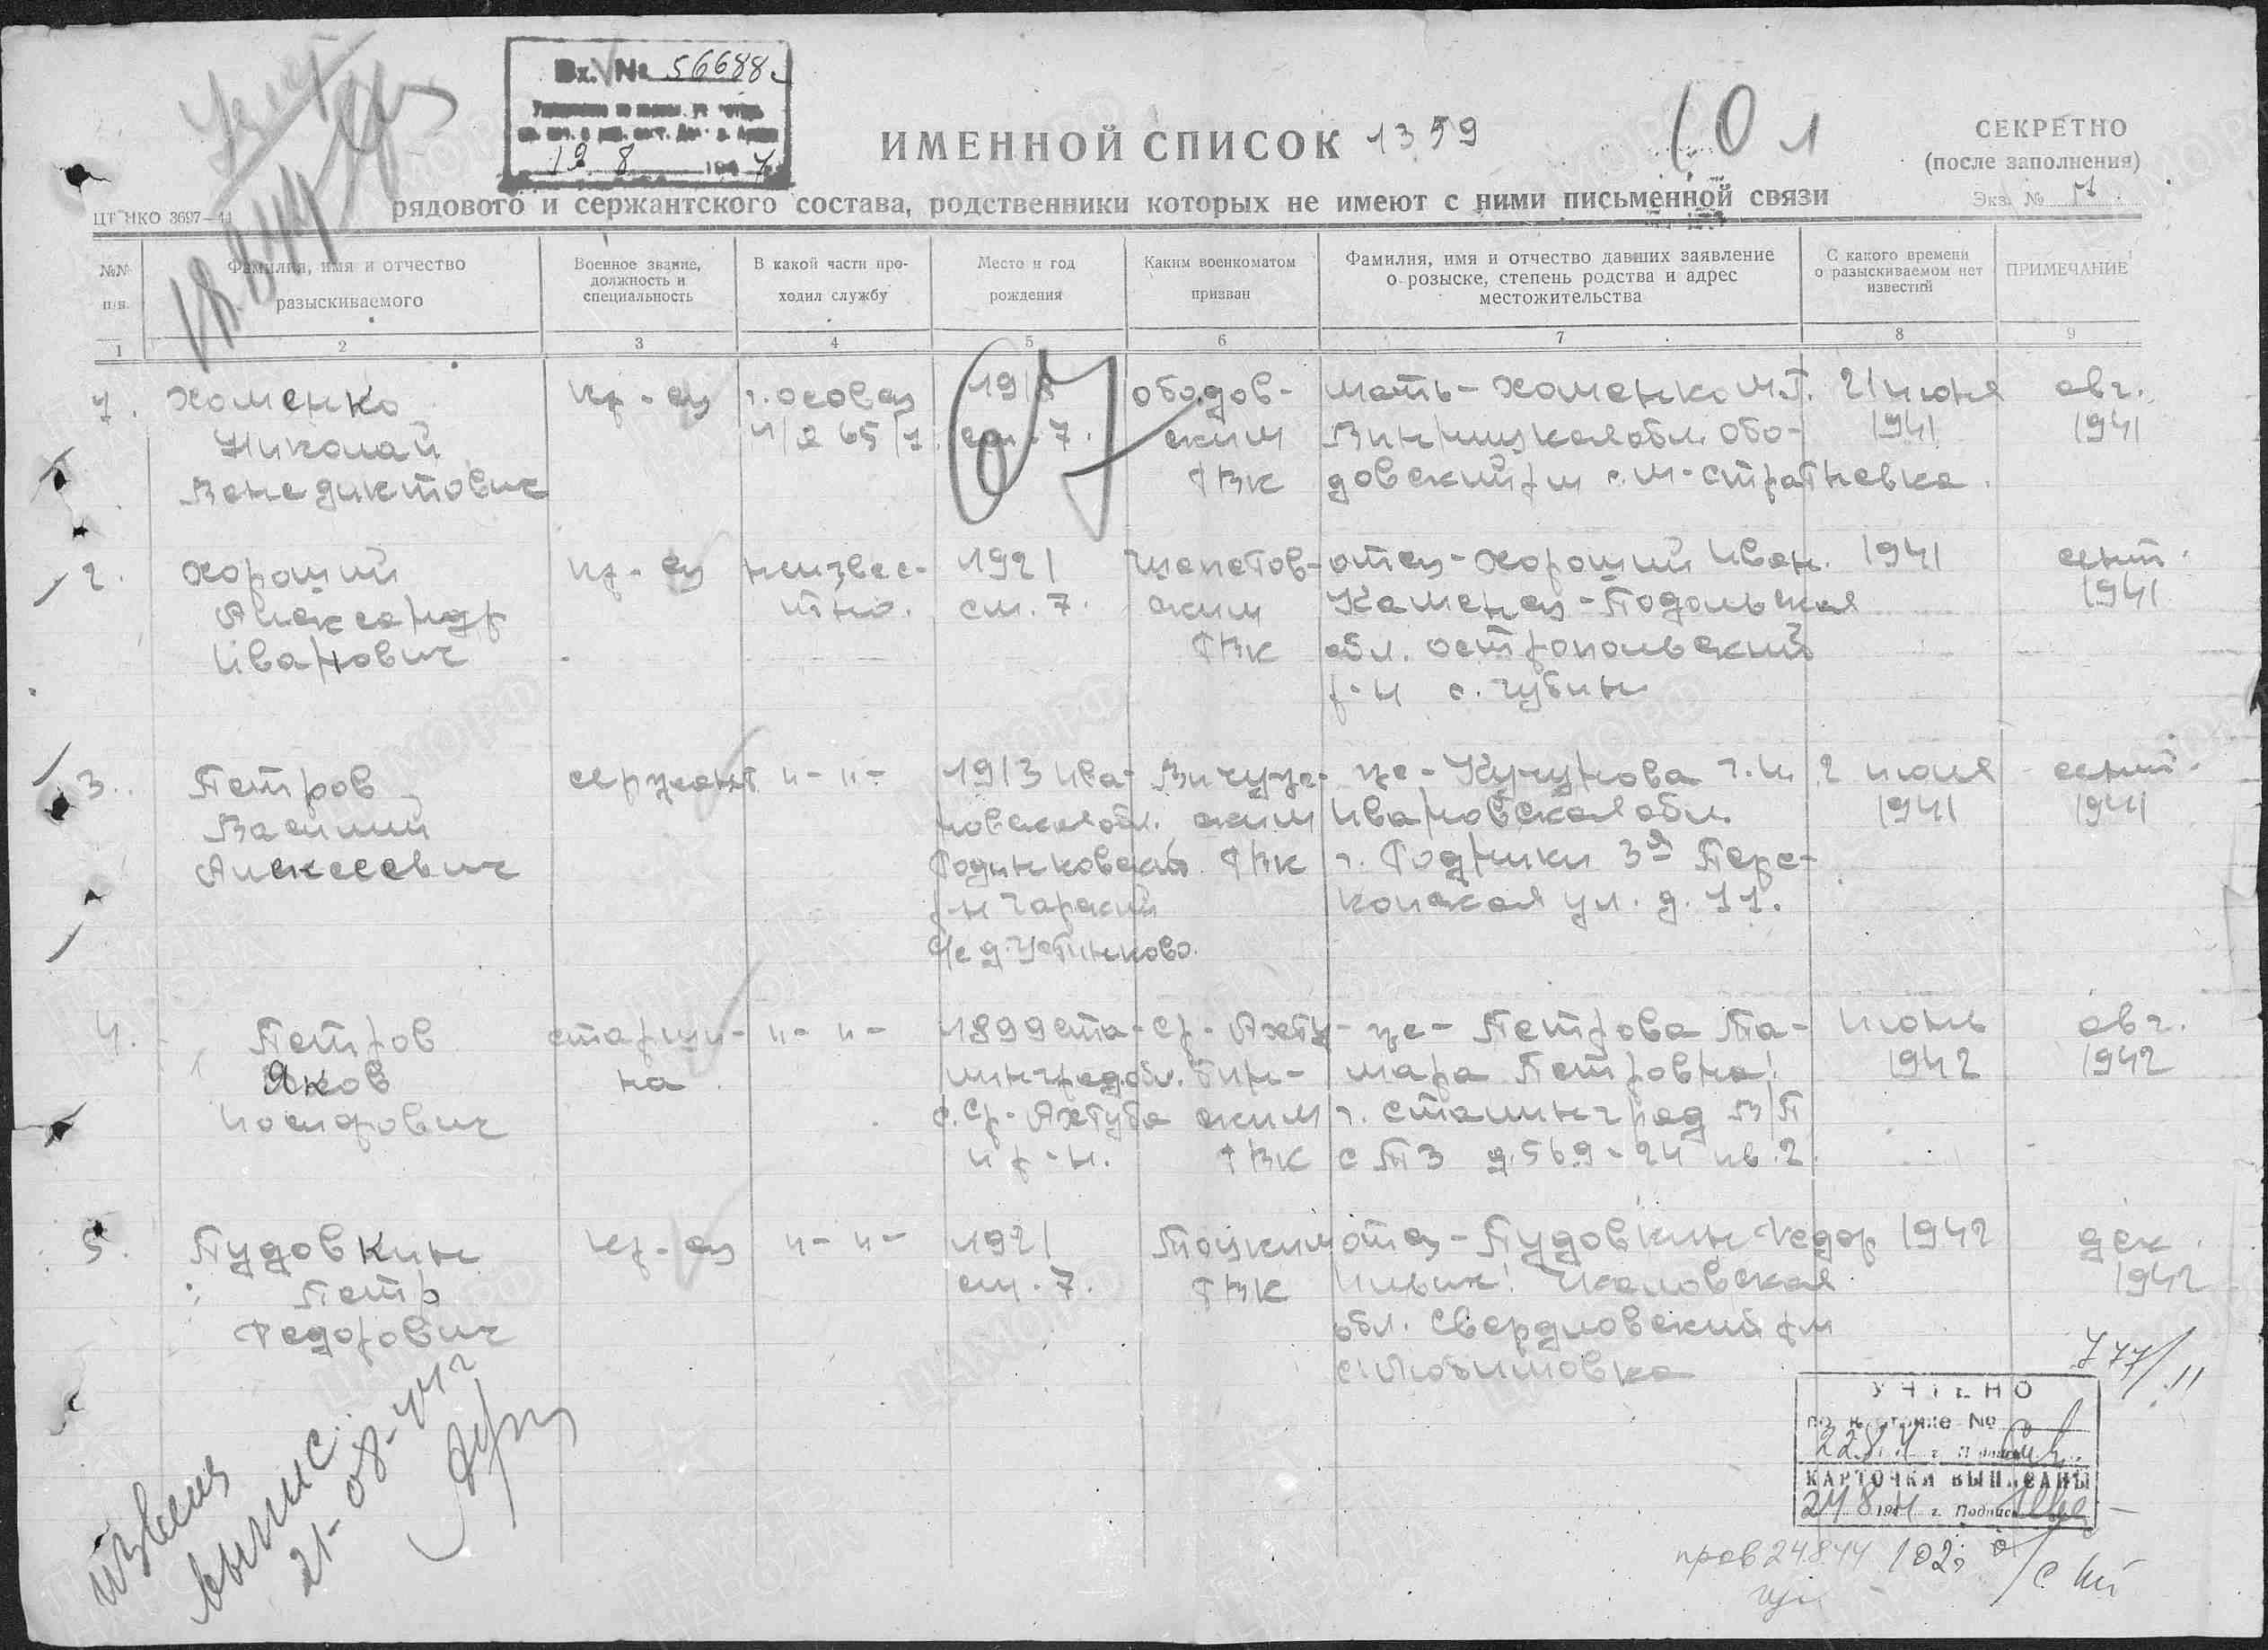 Вх. № 56688
19 8 1944
ИМЕННОЙ СПИСОК 1359
СЕКРЕТНО
(после заполнения)
Экз. №
ЦТ НКО 3697—41
рядового и сержантского состава, родственники которых не имеют с ними письменной связи
№№ п/п.
Фамилия, имя и отчество разыскиваемого
Военное звание, должность и специальность
В какой части проходил службу
Место и год рождения
Каким военкоматом призван
Фамилия, имя и отчество давших заявление о розыске, степень родства и адрес местожительства
С какого времени о разыскиваемом нет известий
ПРИМЕЧАНИЕ
1 2 3 4 5 6 7 8 9
1. Хоменко кр-ец г. Осовец 1918 Ободов- мать-Хоменко М.Г. 21 июня авг.
Николай п/я 65/7 см. 7. ским Винницкая обл. Обо- 1941 1941
Венедиктович РВК довский р-н с. М-Стратиевка
2. Хороший кр-ец неизвес- 1921 Шепетов- отец-Хороший Иван. 1941 сент.
Александр тно. см. 7. ским Каменец-Подольская 1941
Иванович РВК обл. Остропольский
р-н с. Губин
3. Петров сержант "-"- 1913 Ива- Вичуг- же- г.И. 2 июля сент.
Василий новская обл. ским Ивановская обл. 1941 1941
Алексеевич Родниковский РВК г. Родники 3я Пере-
р-н копская ул. д. 11.
с/с д. Устинково.
4. Петров старши- "-"- 1899 Ста- Ср-Ахту- же- Петрова Та- Июнь авг.
Яков на линград. обл. бин- мара Петровна! 1942 1942
Иосифович с. Ср-Ахтуба ским г. Сталинград В/П
и р-н. РВК СТЗ д. 569-24 кв. 2.
5. Пудовкин кр-ец "-"- 1921 Тоцким отец-Пудовкин Федор 1942 дек.
Петр см. 7. РВК Ильич! Чкаловская 1942
Федорович обл. Свердловский р-н
с. Любимовка
777/11
УЧТЕНО
по картотеке №
КАРТОЧКИ ВЫПИСАНЫ
24 8 1944 г. Подпись
извещ
выпис.
21-08-44г
пров 24.8.44